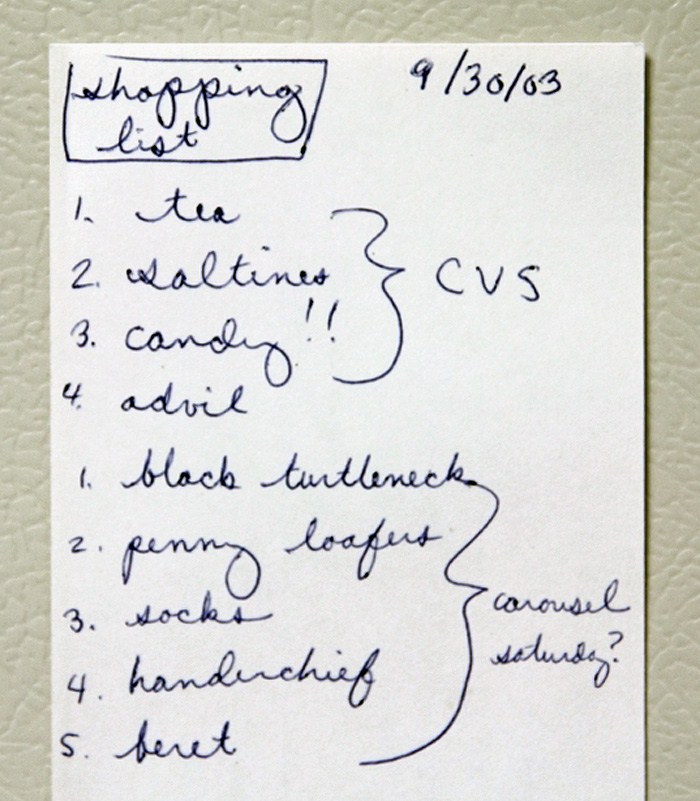 shopping
list
9/30/03
1. tea
2. saltines
3. candy!!
4. advil
CVS
1. black turtleneck
2. penny loafers
3. socks
4. handerchief
5. beret
carousel
saturday?